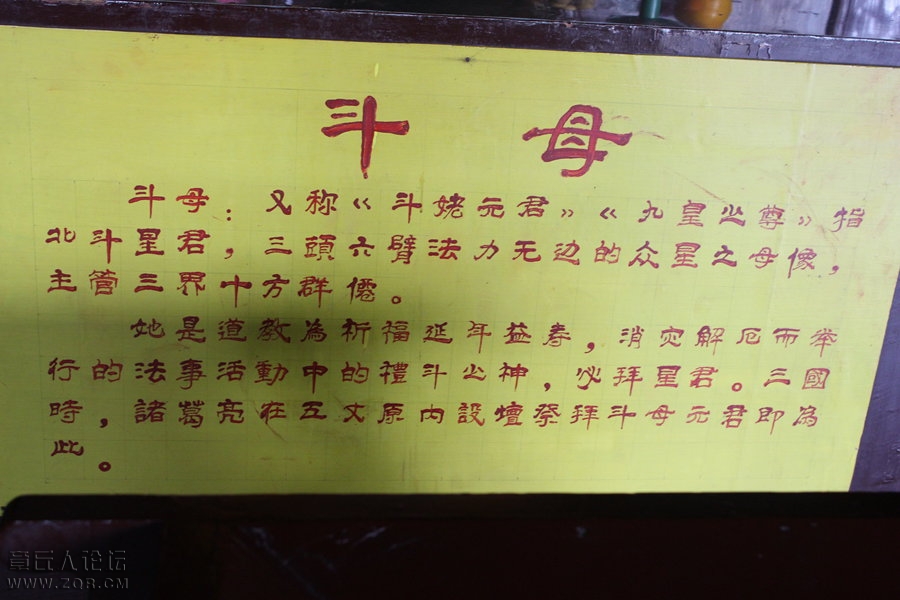 斗 母
斗母：又称《斗姥元君》《九皇之尊》指
北斗星君，三頭六臂法力无边的众星之母像，
主管三界十方群僊。
她是道教為祈福延年益寿，消灾解厄而举
行的法事活動中的禮斗之神，必拜星君。三國
時，諸葛亮在五丈原内設壇祭拜斗母元君即為
此。
章丘人论坛
WWW.ZQR.CM